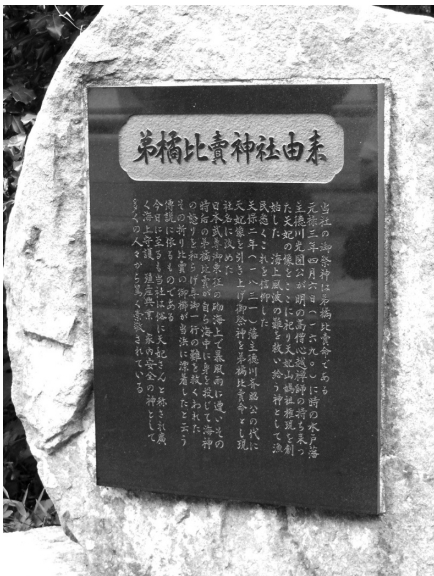 弟橘比賣神社由来
当社の御祭神は弟橘比賣命である
元禄三年四月六日(一六九〇)に時の水戸藩
主徳川光圀公が明の高僧心越禅師の持ち来っ
た天妃の像をここに祀り天妃山媽祖権現を創
始した 海上風波の難を救い給う神として漁
民悉くこれを信仰した
天保二年(一八三一)藩主徳川斉昭公の代に
天妃像を引き上げ御祭神を弟橘比賣命とし現
社名に改めた
日本武尊御東征の砌海上で暴風雨に遭いその
時后の弟橘比賣が自ら海中に身を投じて海神
の怒りを和らげ尊御一行の難を救くわれた
その折り比賣の御櫛が当浜に漂着したと云う
傳説に依るものである
今日に至るも当社は俗に天妃さんと称され廣
く海上守護、殖産興業、家内安全の神として
多くの人々から篤く崇敬されている